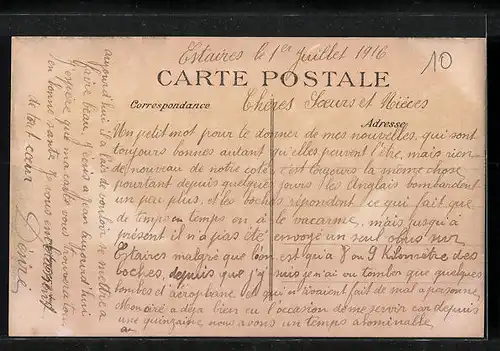 Estaires le 1er Juillet 1916
10
CARTE POSTALE
Correspondance
Chères Sœurs et Nièces
Adresse
Un petit mot pour te donner de mes nouvelles, qui sont
toujours bonnes autant qu'elles peuvent l'être, mais rien
de nouveau de notre coté, c'est toujours la même chose
pourtant depuis quelques jours les Anglais bombardent
un peu plus, et les boches répondent ce qui fait que
de temps en temps on a le vacarme, mais jusqu'à
présent il n'a pas été envoyé un seul obus sur
Estaires malgré que l'on est qu'a 8 ou 9 Kilometre des
boches, depuis que j'y suis je n'ai vu tomber que quelques
bombes et aéroplane et qui n'avaient fait de mal a personne,
Mon ciré a déja bien eu l'occasion de me servir car depuis
une quinzaine nous avons un temps abominable,
aujourd'hui il a l'air de vouloir se mettre a
faire beau,
j'espère que ma carte vous trouvera tous
en bonne santé, je vous
de tout cœur
Désiré